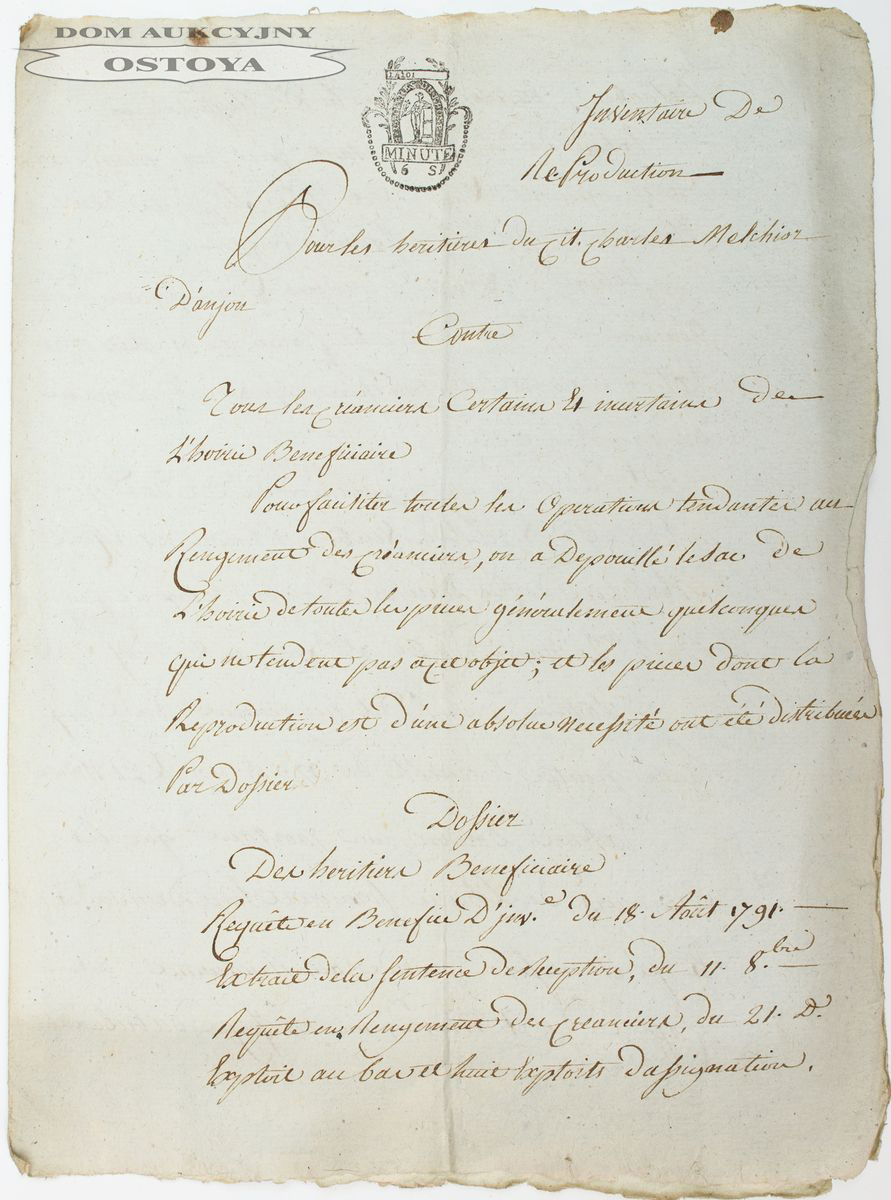 DOM AUKCYJNY
OSTOYA
LA LOI
MINUTE
6 S
Inventaire De
ReProduction
Pour les heritieres du Cit. Charles Melchior
D'anjou
Contre
Tous les créanciers Certains Et incertains de
L'hoirie Beneficiaire
Pour faciliter toutes les Operations tendantes au
Rengement des créanciers, on a Depouillé le sac de
L'hoirie de toutes les pieces généralement quelconques
qui ne tendent pas a cet objet; et les pieces dont la
Reproduction est d'une absolue necessité ont été distribuées
Par Dossier
Dossier
Des heritiers Beneficiaire
Requête en Benefice D'inv.e du 18. Août 1791.
Extrait de la sentence de Reception, du 11. 8.bre
Requête en Rengement des creanciers, du 21. D.
Exploit au bas et huit Exploits d'assignation.